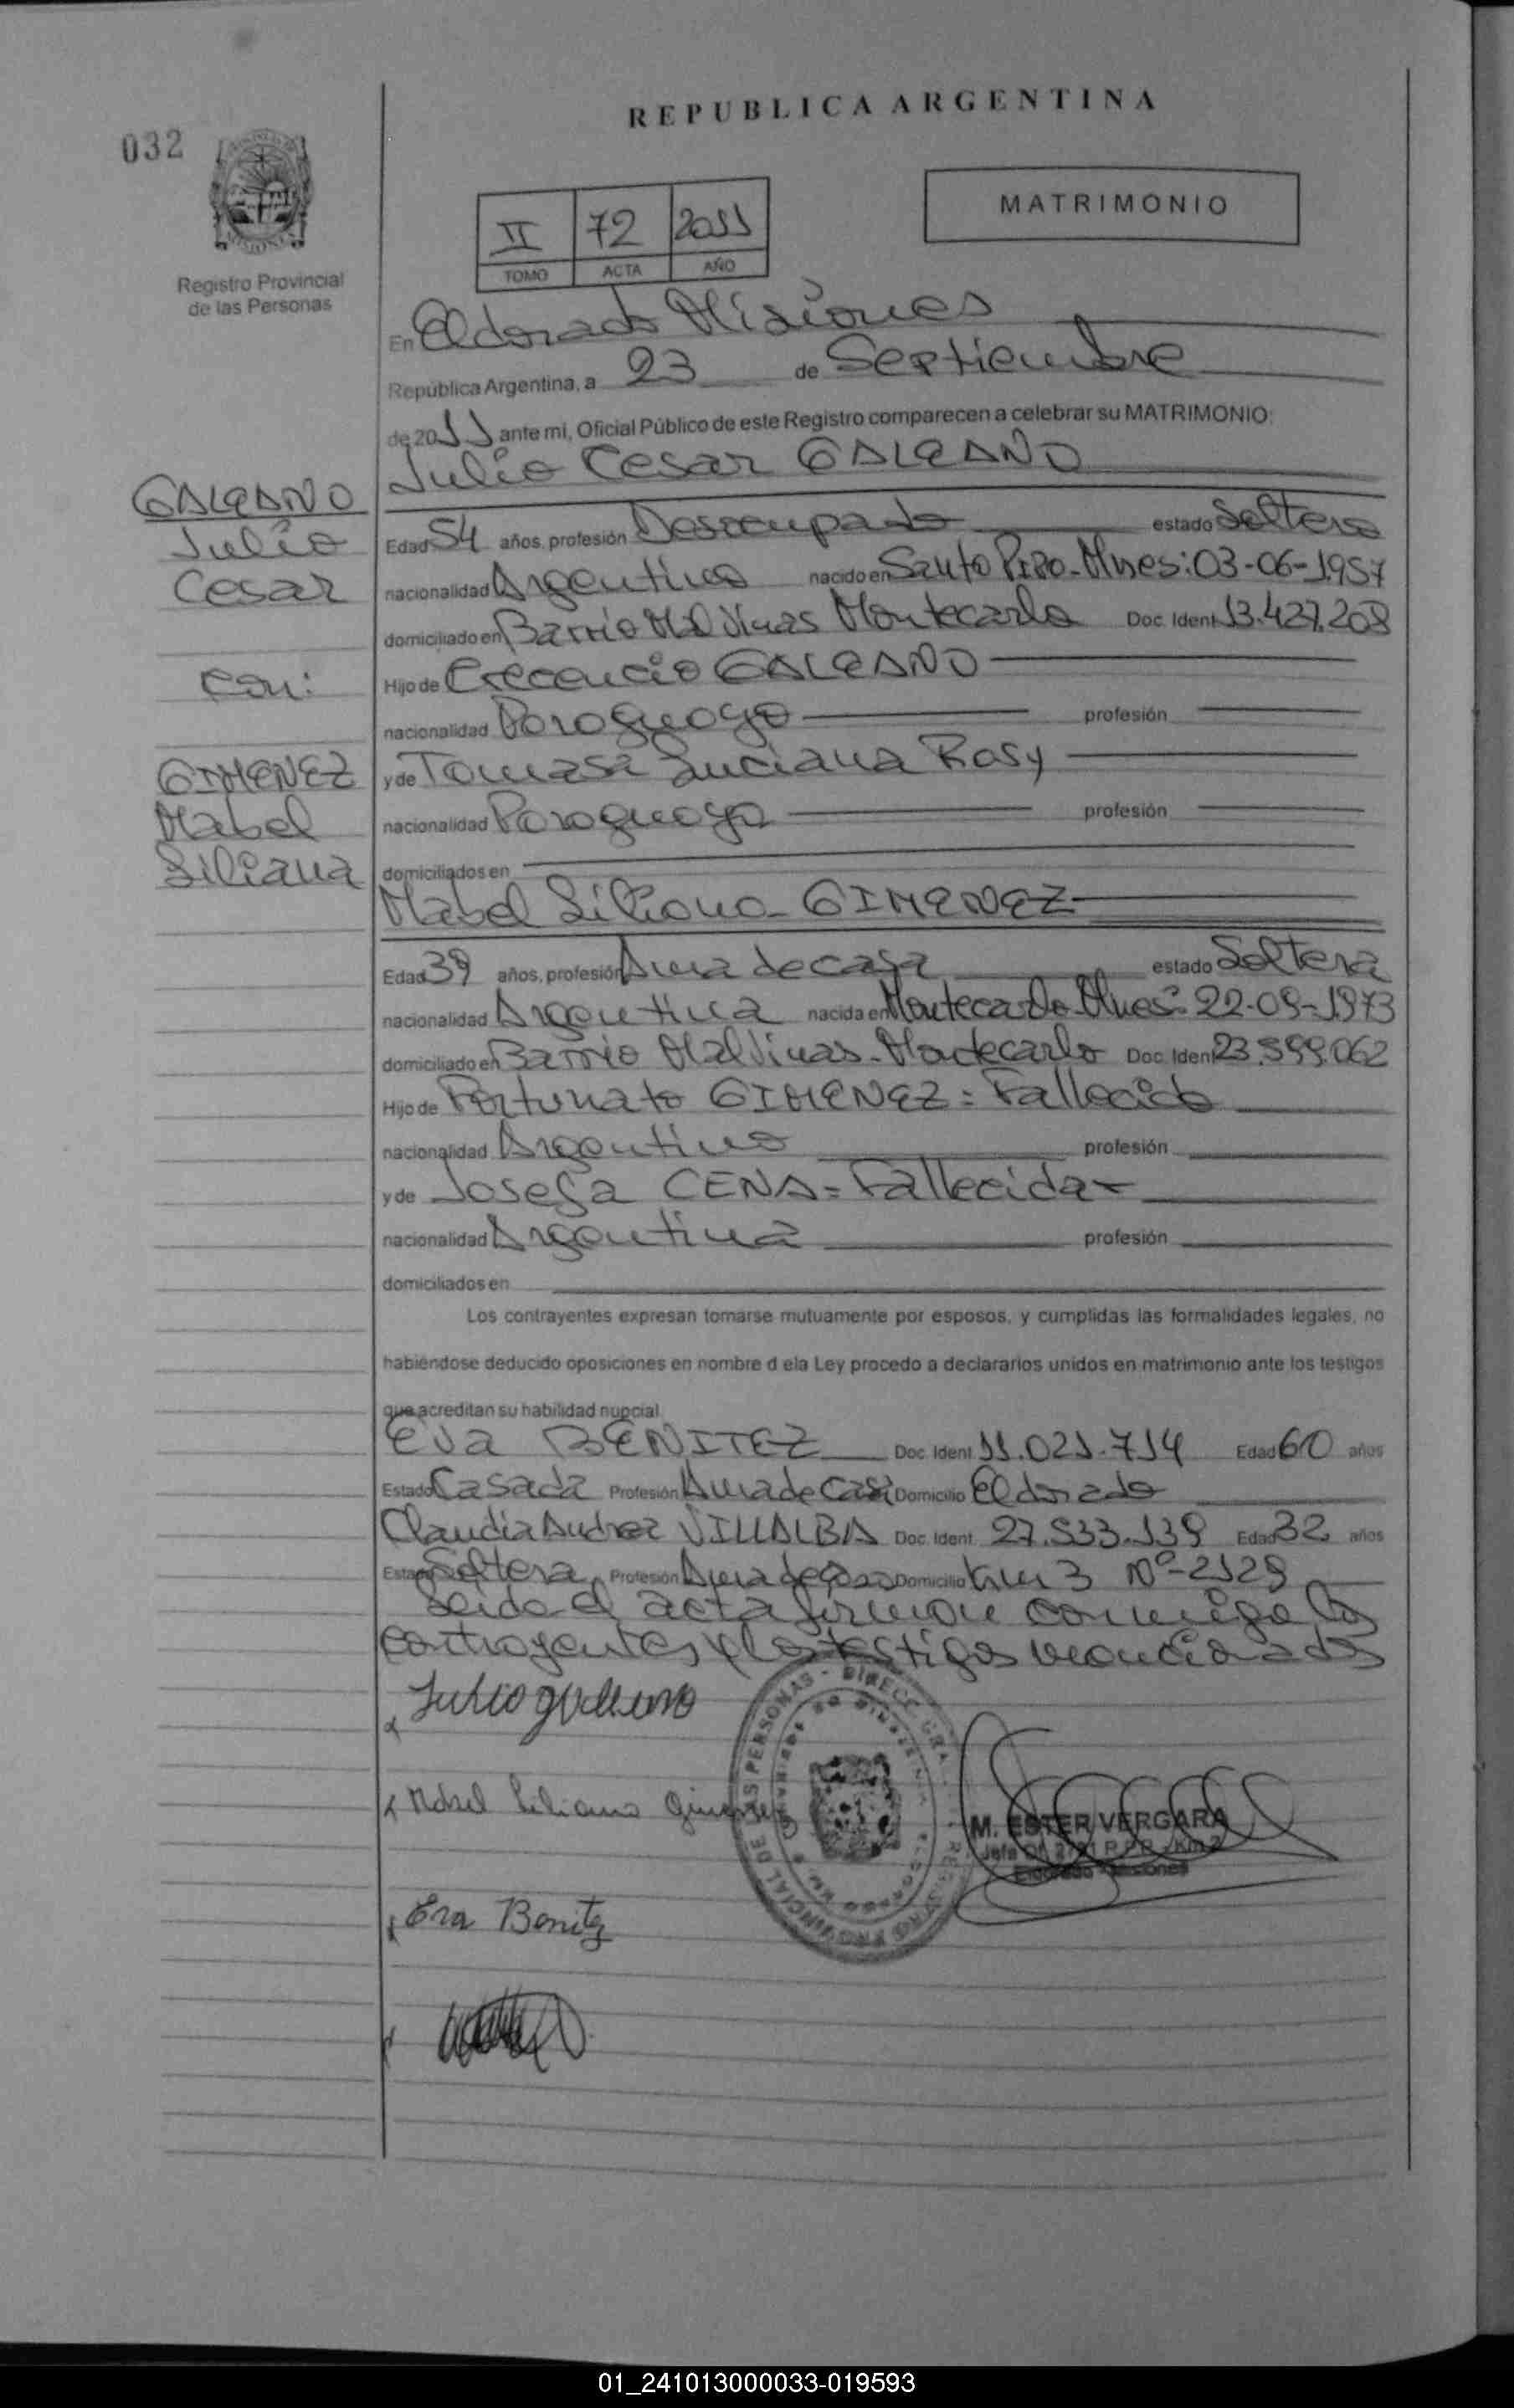 032
REPUBLICA ARGENTINA
MATRIMONIO
II 72 2011
TOMO ACTA AÑO
Registro Provincial
de las Personas
En Eldorado Misiones
República Argentina, a 23 de Septiembre
de 2011 ante mi, Oficial Público de este Registro comparecen a celebrar su MATRIMONIO:
Julio Cesar GALEANO
GALEANO
Julio
Cesar
con:
GIMENEZ
Mabel
Liliana
Edad 54 años, profesión Desocupado estado Soltero
nacionalidad Argentino nacido en Santo Pipo-Mnes: 03-06-1957
domiciliado en Barrio Malvinas Montecarlo Doc. Ident 13.427.208
Hijo de Crecencio GALEANO
nacionalidad Paraguayo profesión
y de Tomasa Luciana Rosy
nacionalidad Paraguaya profesión
domiciliados en
Mabel Liliana GIMENEZ
Edad 39 años, profesión Ama de casa estado Soltera
nacionalidad Argentina nacida en Montecarlo-Mnes: 22-09-1973
domiciliado en Barrio Malvinas-Montecarlo Doc. Ident 23.599.062
Hijo de Fortunato GIMENEZ = Fallecido
nacionalidad Argentino profesión
y de Josefa CENA = Fallecida
nacionalidad Argentina profesión
domiciliados en
Los contrayentes expresan tomarse mutuamente por esposos, y cumplidas las formalidades legales, no
habiéndose deducido oposiciones en nombre d ela Ley procedo a declararlos unidos en matrimonio ante los testigos
que acreditan su habilidad nupcial
Eva BENITEZ Doc. Ident 11.021.714 Edad 60 años
Estado Casada Profesión Ama de Casa Domicilio Eldorado
Claudia Andrea VILLALBA Doc. Ident. 27.533.139 Edad 32 años
Estado Soltera Profesión Ama de Casa Domicilio Km 3 Nº-2129
Leida el acta firman conmigo los
contrayentes y los testigos mencionados
Julio galeano
Mabel Liliana Gimenez
M. ESTER VERGARA
Eldorado - Misiones
Eva Benitez
01_241013000033-019593